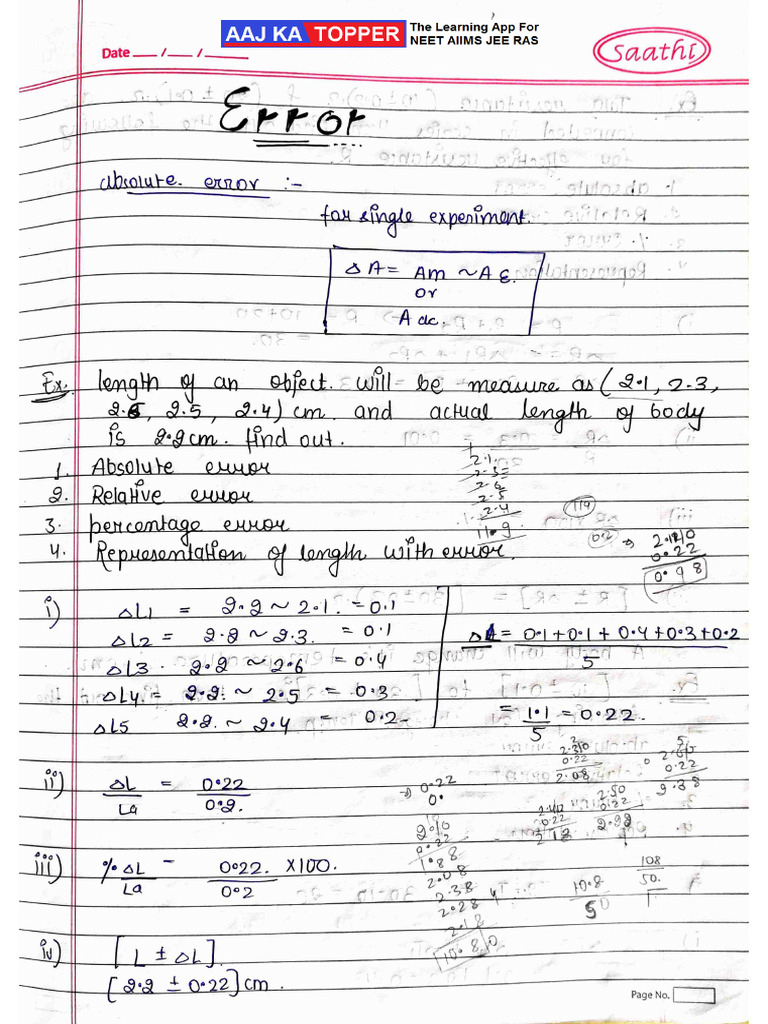 AAJ KA TOPPER
The Learning App For
NEET AIIMS JEE RAS
Date __/__/__
Saathi
Error
absolute error :-
for single experiment.
△A = Am ~ A E.
or
A ac.
Ex. length of an object will be measure as (2.1, 2.3,
2.6, 2.5, 2.4) cm. and actual length of body
is 2.2cm. find out.
1. Absolute error
2. Relative error
3. percentage error
4. Representation of length with error.
2.1
2.3
2.6
2.5
2.4
11.9
119
0.2
0.22
0.98
i) △L1 = 2.2 ~ 2.1. = 0.1
△L2 = 2.2 ~ 2.3. = 0.1
△L3 . 2.2 ~ 2.6 = 0.4
△L4 = 2.2. ~ 2.5 = 0.3
△L5 2.2. ~ 2.4 = 0.2
= 0.1+0.1+0.4+0.3+0.2
5
= 1.1 = 0.22.
5
ii) △L = 0.22
La 0.2.
0.22
0.
2.30
0.22
2.08
0.22
2.38
2.50
0.22
0.22
2.18
iii) % △L = 0.22. X100.
La 0.2
0.22
1.88
2.08
2.38
2.28
2.18
10.80
10.8
5
108
50.
iv) [L ± △L].
[2.2 ± 0.22] cm.
Page No.